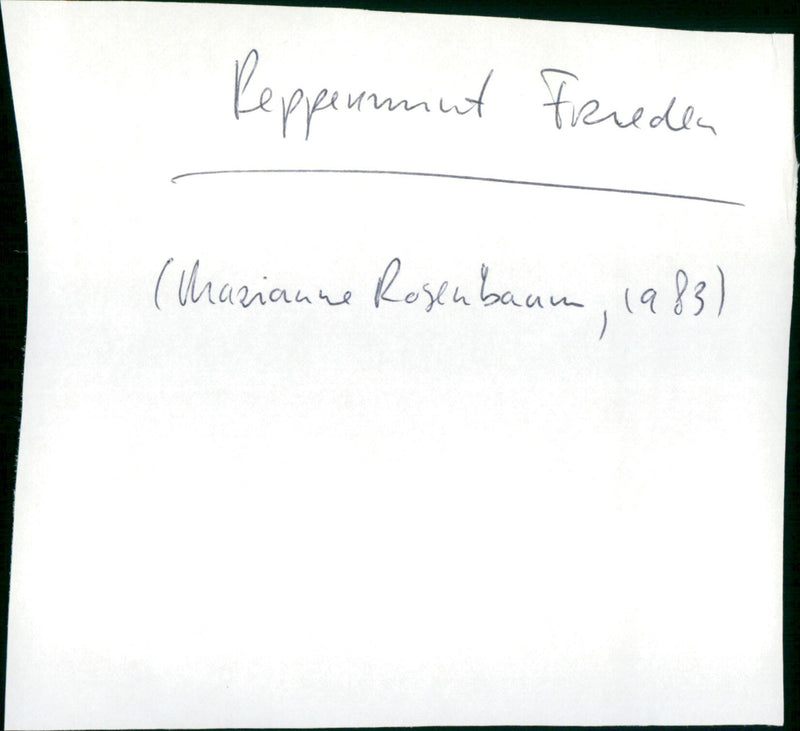 Peppermint Frieden
(Marianne Rosenbaum, 1983)